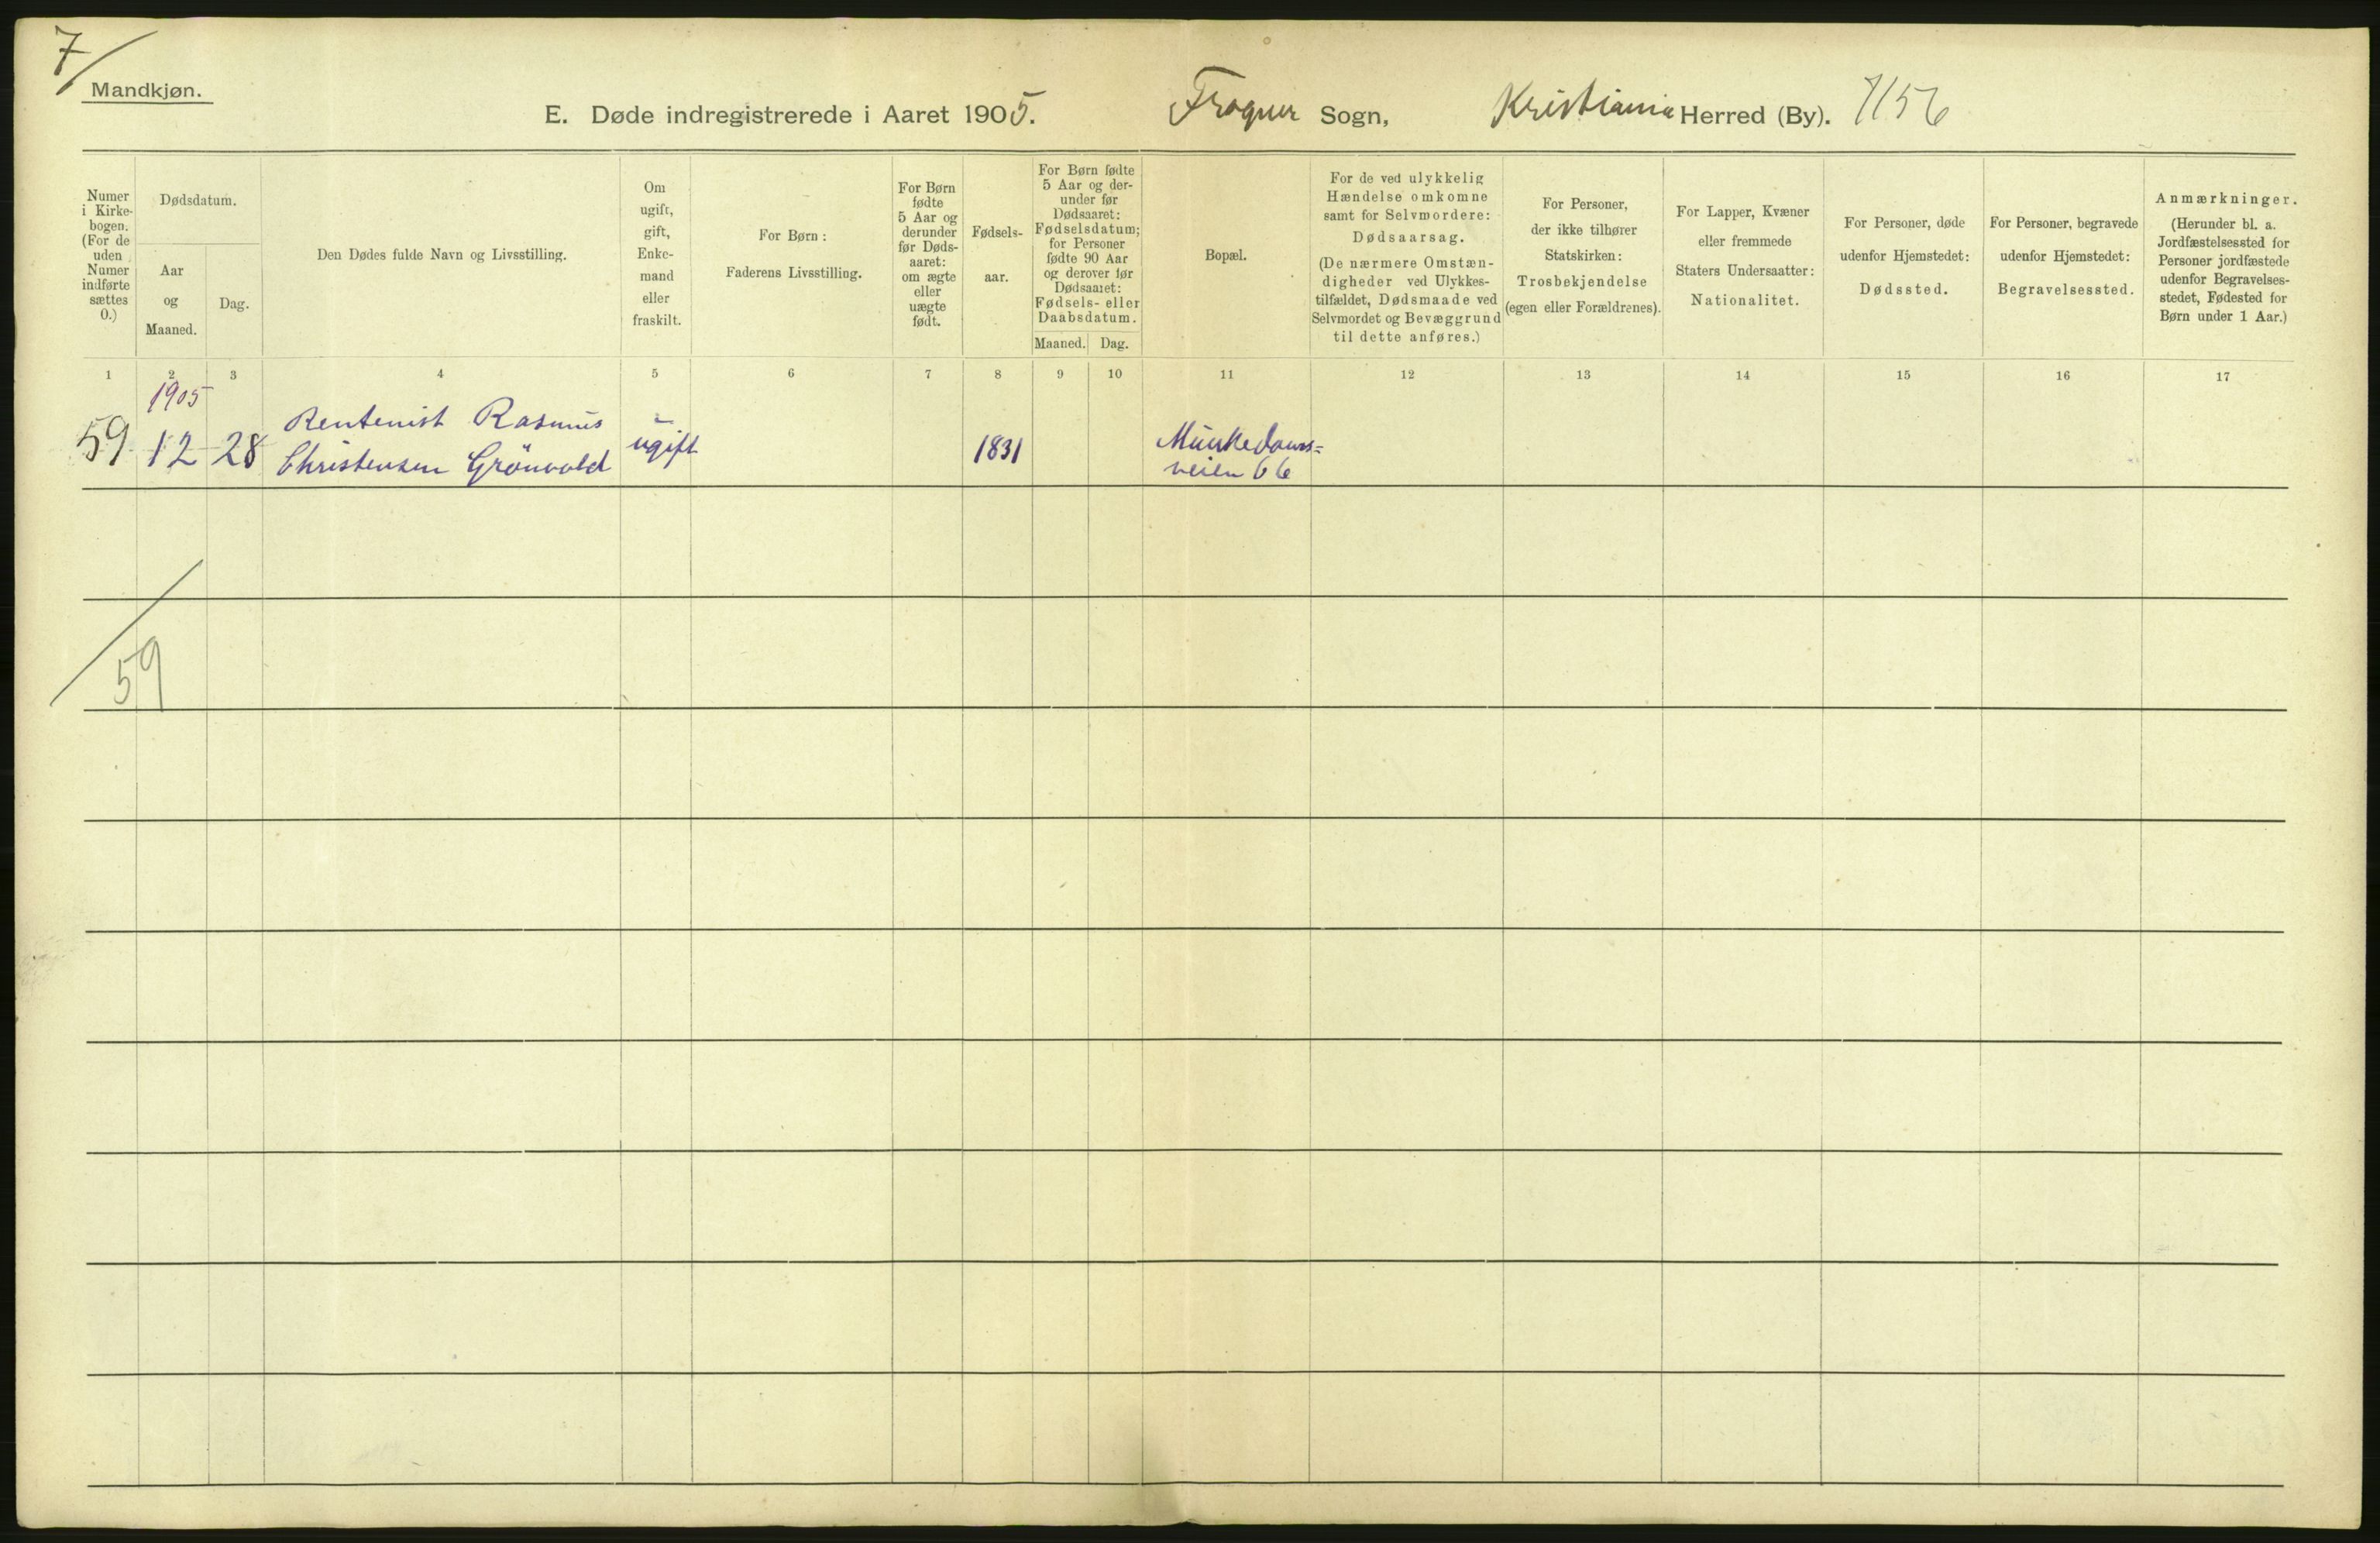 7/
Mandkjøn.
E. Døde indregistrerede i Aaret 1905. Frogner Sogn, Kristiania Herred (By). 7156
Numer
i Kirke-
bogen.
(For de
uden
Numer
indførte
sættes
0.)
Dødsdatum.
Aar
og
Maaned.
Dag.
Den Dødes fulde Navn og Livsstilling.
Om
ugift,
gift,
Enke-
mand
eller
fraskilt.
For Børn:
Faderens Livsstilling.
For Børn
fødte
5 Aar og
derunder
før Døds-
aaret:
om ægte
eller
uægte
født.
Fødsels-
aar.
For Børn fødte
5 Aar og der-
under før
Dødsaaret:
Fødselsdatum;
for Personer
fødte 90 Aar
og derover før
Dødsaaret:
Fødsels- eller
Daabsdatum.
Maaned. Dag.
Bopæl.
For de ved ulykkelig
Hændelse omkomne
samt for Selvmordere:
Dødsaarsag.
(De nærmere Omstæn-
digheder ved Ulykkes-
tilfældet, Dødsmaade ved
Selvmordet og Bevæggrund
til dette anføres.)
For Personer,
der ikke tilhører
Statskirken:
Trosbekjendelse
(egen eller Forældrenes).
For Lapper, Kvæner
eller fremmede
Staters Undersaatter:
Nationalitet.
For Personer, døde
udenfor Hjemstedet:
Dødssted.
For Personer, begravede
udenfor Hjemstedet:
Begravelsessted.
Anmærkninger.
(Herunder bl. a.
Jordfæstelsessted for
Personer jordfæstede
udenfor Begravelses-
stedet, Fødested for
Børn under 1 Aar.)
1 2 3 4 5 6 7 8 9 10 11 12 13 14 15 16 17
1905
59 12 28
Rentenist Rasmus
Christensen Grönvold
ugift
1831
Munkedams=
veien 66
59